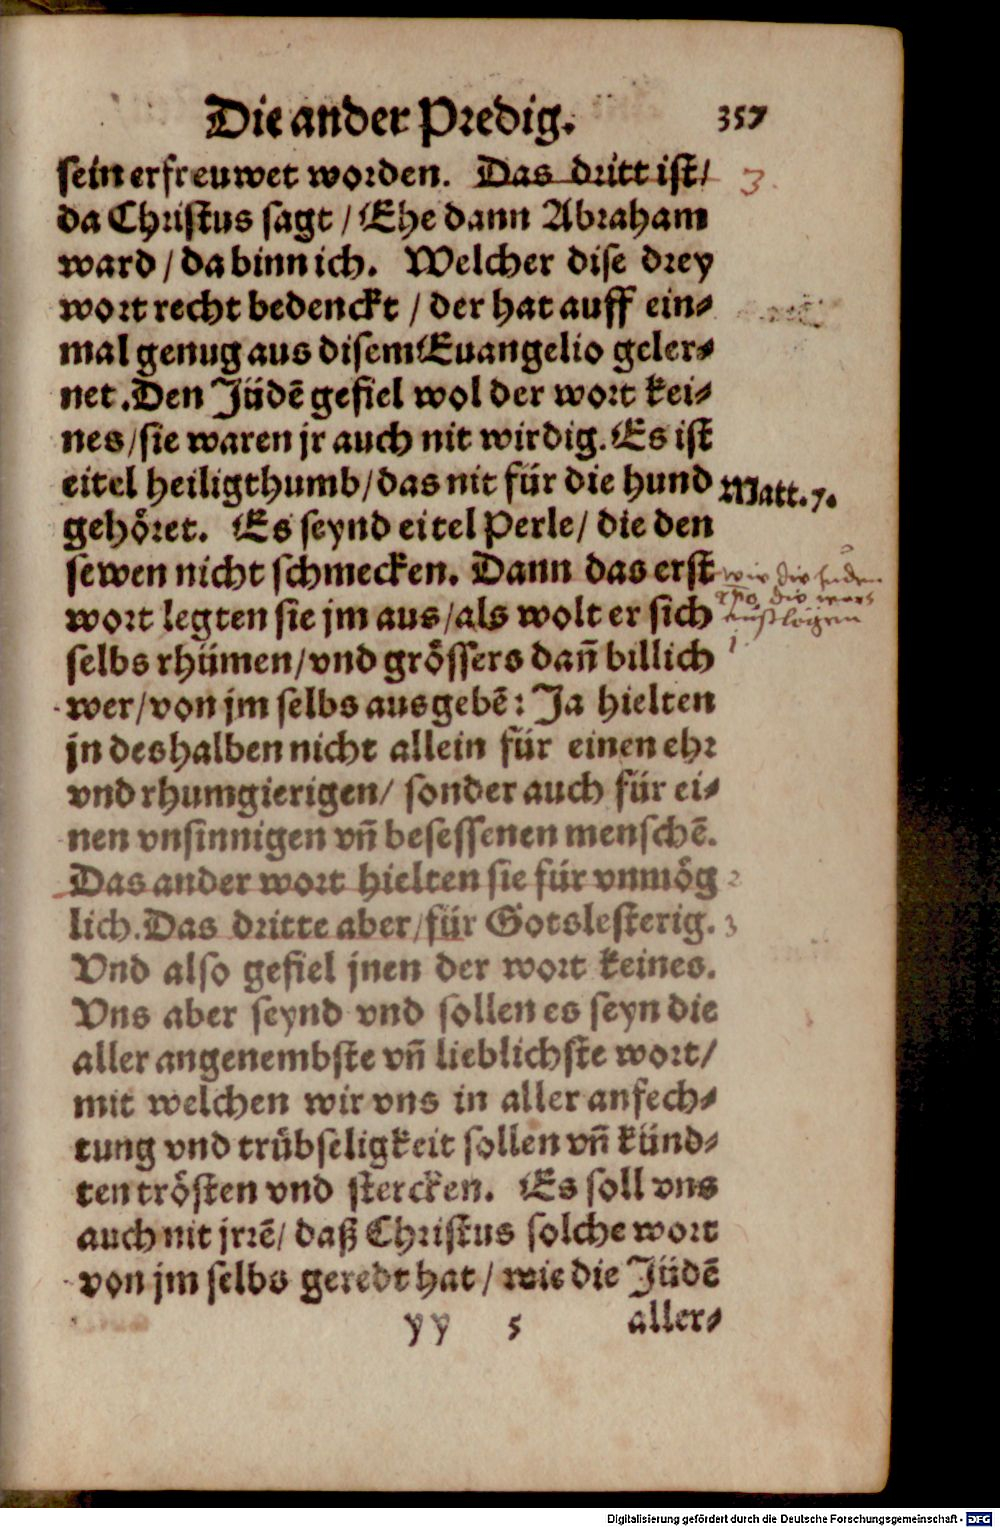 Die ander Predig. 357
sein erfreuwet worden. Das dritt ist/ 3.
da Christus sagt / Ehe dann Abraham
ward / da binn ich. Welcher dise drey
wort recht bedenckt / der hat auff ein⸗
mal genug aus disem Euangelio geler⸗
net. Den Jüdẽ gefiel wol der wort kei⸗
nes/sie waren jr auch nit wirdig. Es ist
eitel heiligthumb/das nit für die hund Matt. 7.
gehöret. Es seynd eitel Perle/ die den
sewen nicht schmecken. Dann das erst
wort legten sie jm aus/als wolt er sich
selbs rhümen/vnd grössers dañ billich 1.
wer/von jm selbs ausgebẽ: Ja hielten
jn deshalben nicht allein für einen ehr
vnd rhumgierigen/ sonder auch für ei⸗
nen vnsinnigen vñ besessenen menschẽ.
Das ander wort hielten sie für vnmög 2
lich. Das dritte aber/für Gotslesterig. 3
Vnd also gefiel jnen der wort keines.
Vns aber seynd vnd sollen es seyn die
aller angenembste vñ lieblichste wort/
mit welchen wir vns in aller anfech⸗
tung vnd trübseligkeit sollen vñ künd⸗
ten trösten vnd stercken. Es soll vns
auch nit jrrẽ/ daß Christus solche wort
von jm selbs geredt hat / wie die Jüdẽ
yy 5 aller⸗
Digitalisierung gefördert durch die Deutsche Forschungsgemeinschaft - DFG